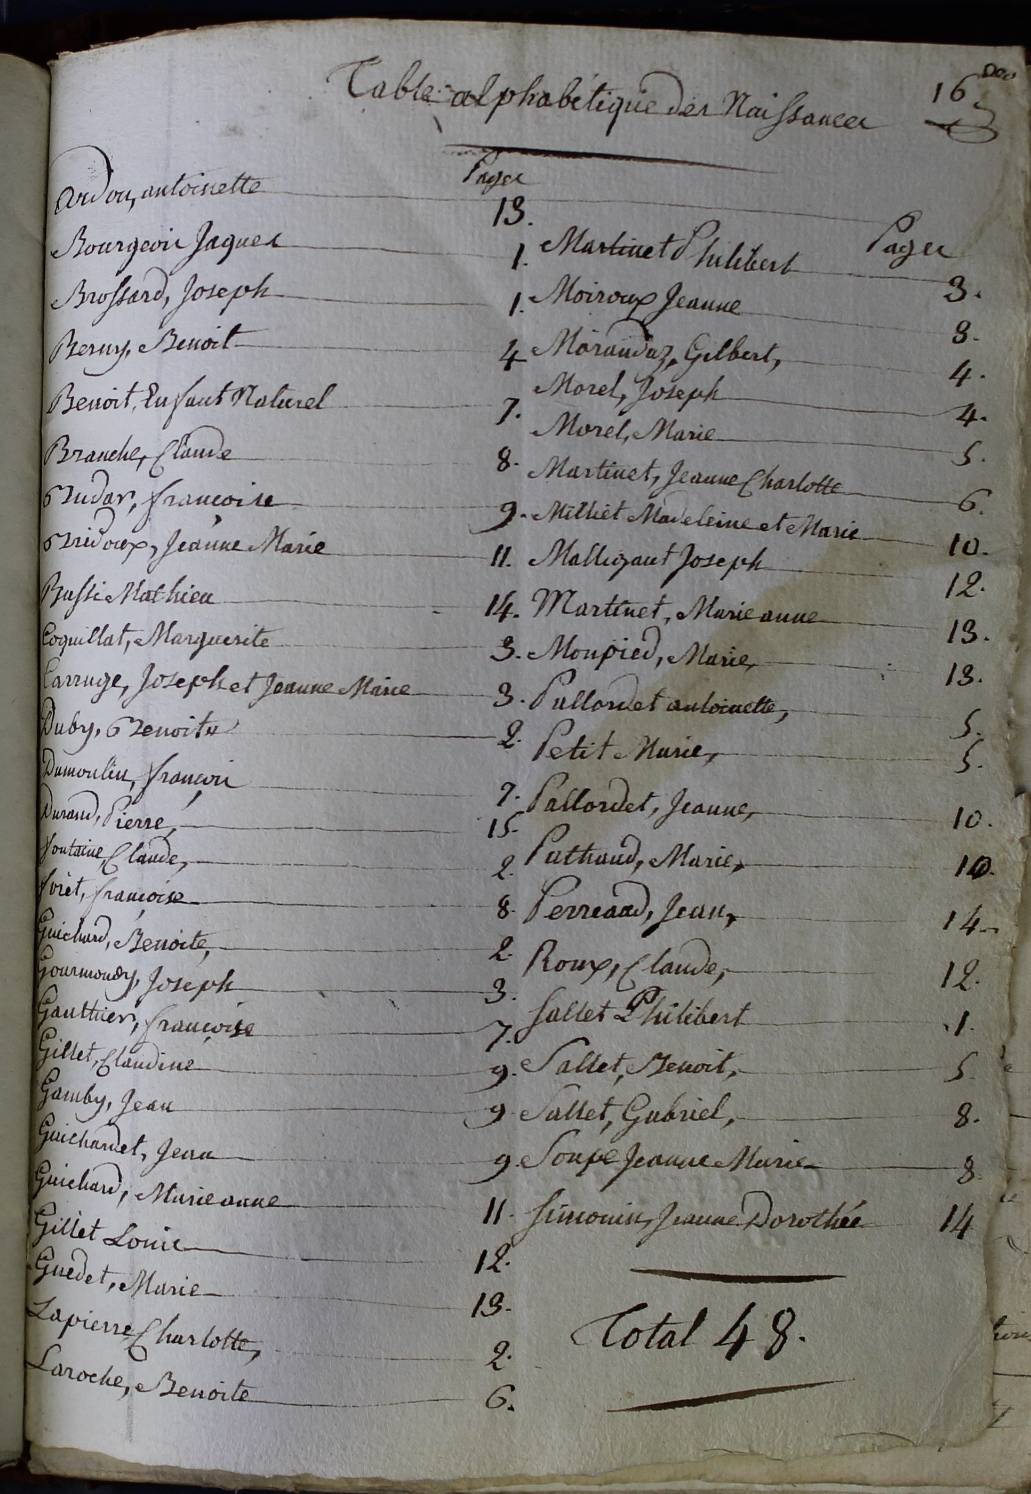 Table alphabétique des Naissances
16
Pages
Ardou, antoinette 13.
Bourgeois Jaques 1.
Brossard, Joseph 1.
Berny, Benoit 4
Benoit, Enfant Naturel 7.
Branche, Claude 8.
Budar, françoise 9.
Bridoux, Jeanne Marie 11.
Bussi Mathieu 14.
Coquillat, Marguerite 3.
Carruge, Joseph et Jeanne Marie 3.
Duby, Benoite 2.
Dumoulin, françois 7.
Durand, Pierre, 15.
fontaine, Claude, 2.
foret, françoise 8.
Guichard, Benoite, 2.
Gourmondy, Joseph 3.
Gauthier, françoise 7.
Gillet, Claudine 9.
Gamby, Jean 9
Guichardet, Jean 9.
Guichard, Marie anne 11.
Gillet Louis 12.
Guedet, Marie 13.
Lapierre, Charlotte, 2.
Laroche, Benoite 6.
Pages
Martinet Philibert 3.
Moiroux Jeanne 8.
Morandaz, Gilbert, 4.
Morel, Joseph 4.
Morel, Marie 5.
Martinet, Jeanne Charlotte 6.
Milliet Madeleine et Marie 10.
Malligant Joseph 12.
Martinet, Marie anne 13.
Monpied, Marie, 13.
Pallordet antoinette, 5.
Petit Marie, 5.
Pallordet, Jeanne, 10.
Puthaud, Marie, 10.
Perreaad, Jean, 14.
Roux, Claude, 12.
Sallet Philibert 1.
Sallet, Benoit, 5
Sallet, Gabriel, 8.
Soupe Jeanne Marie 8
Simonin, Jeanne Dorothée 14
Total 48.